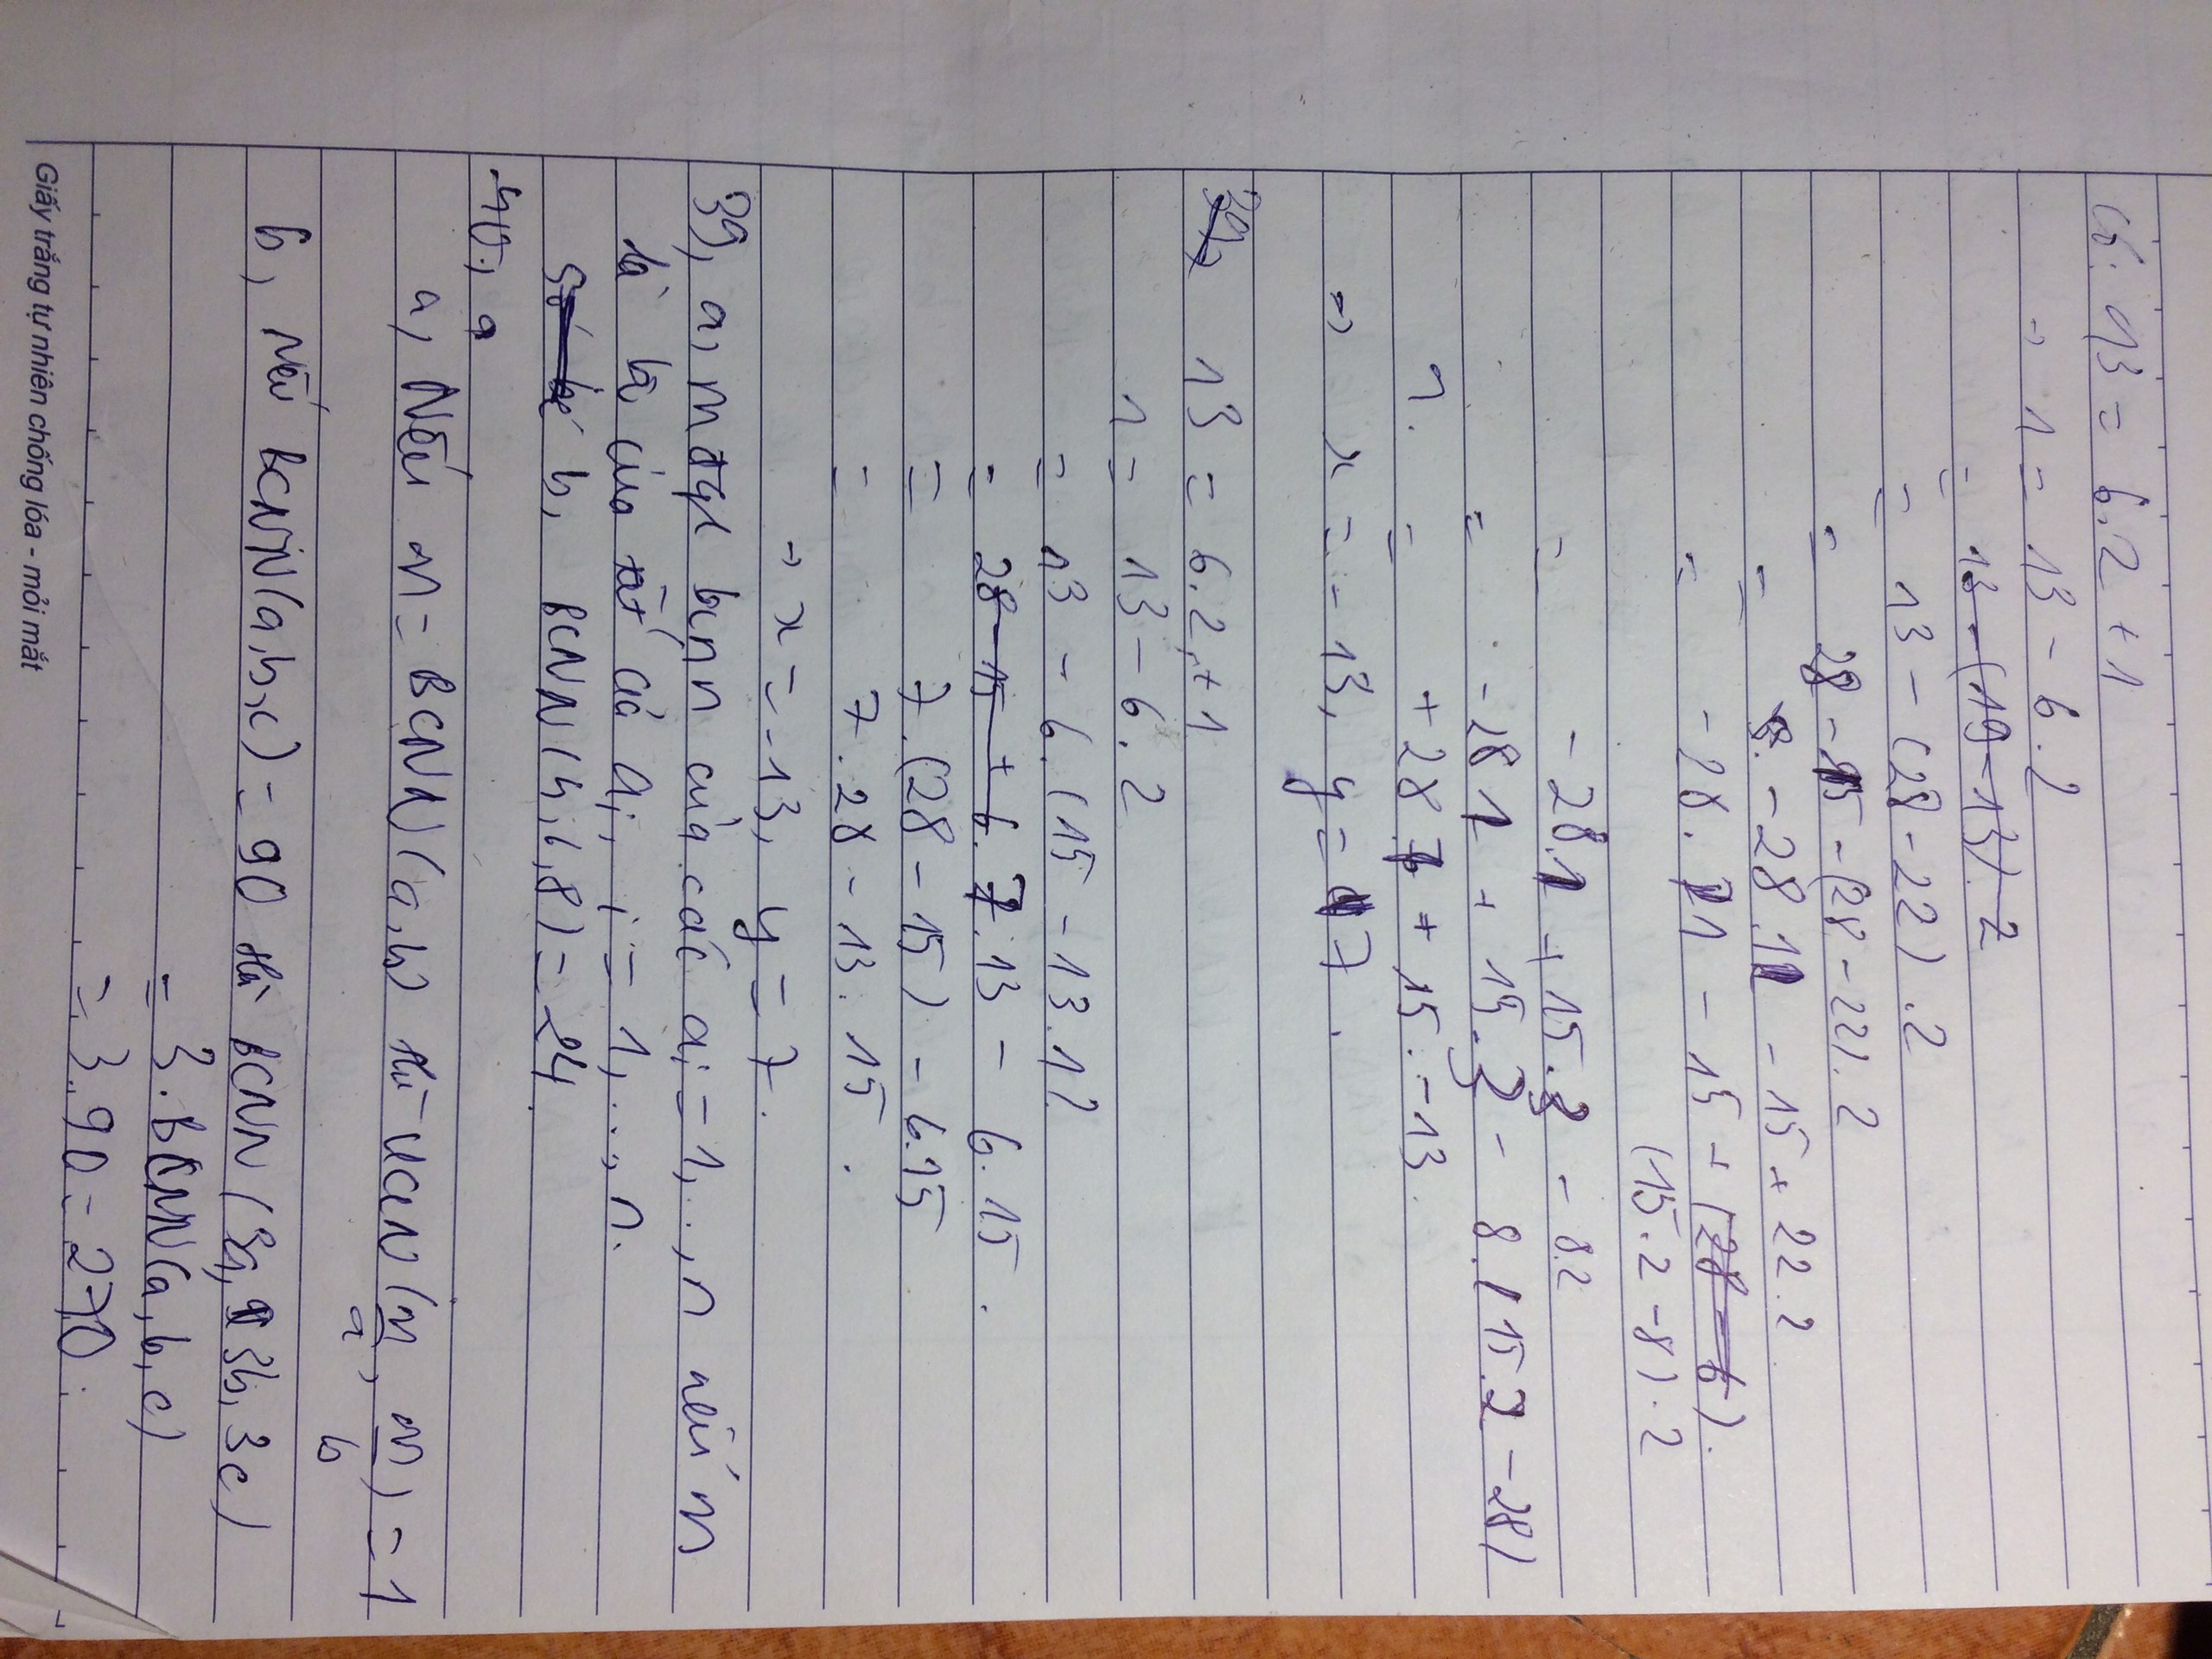 13 = 6.2 + 1
⇒ 1 = 13 - 6.2
= 13 - (19 - 13).2
= 13 - (28 - 22).2
= 28 - 15 - (28 - 22).2
= - 28.1 - 15 + 22.2
= - 28.1 - 15 + (28 - 6).
(15.2 - 8).2
= - 28.1 + 15.3 - 8.2
= - 28 1 + 15.3 - 8.(15.2 - 28)
1. = + 28.7 + 15. - 13.
⇒ x = - 13, y = 7.
39, 13 = 6.2 + 1
1 = 13 - 6.2
= 13 - 6.(15 - 13.1).
= 28 - 15 + 6. 7.13 - 6.15.
= 7.(28 - 15) - 6.15
= 7.28 - 13.15.
⇒ x = - 13, y = 7.
39, a, m là của các ai = 1,..., n nếu m
là của tất cả ai, i = 1,..., n.
b, BCNN(4,6,8) = 24.
40, a
a, Nếu m = BCNN(a,b) thì ƯCLN(m/a, m/b) = 1
b, Nếu BCNN(a,b,c) = 90 thì BCNN(3a, 3b, 3c)
= 3.BCNN(a,b,c)
= 3.90 = 270.
Giấy trắng tự nhiên chống lóa - mỏi mắt